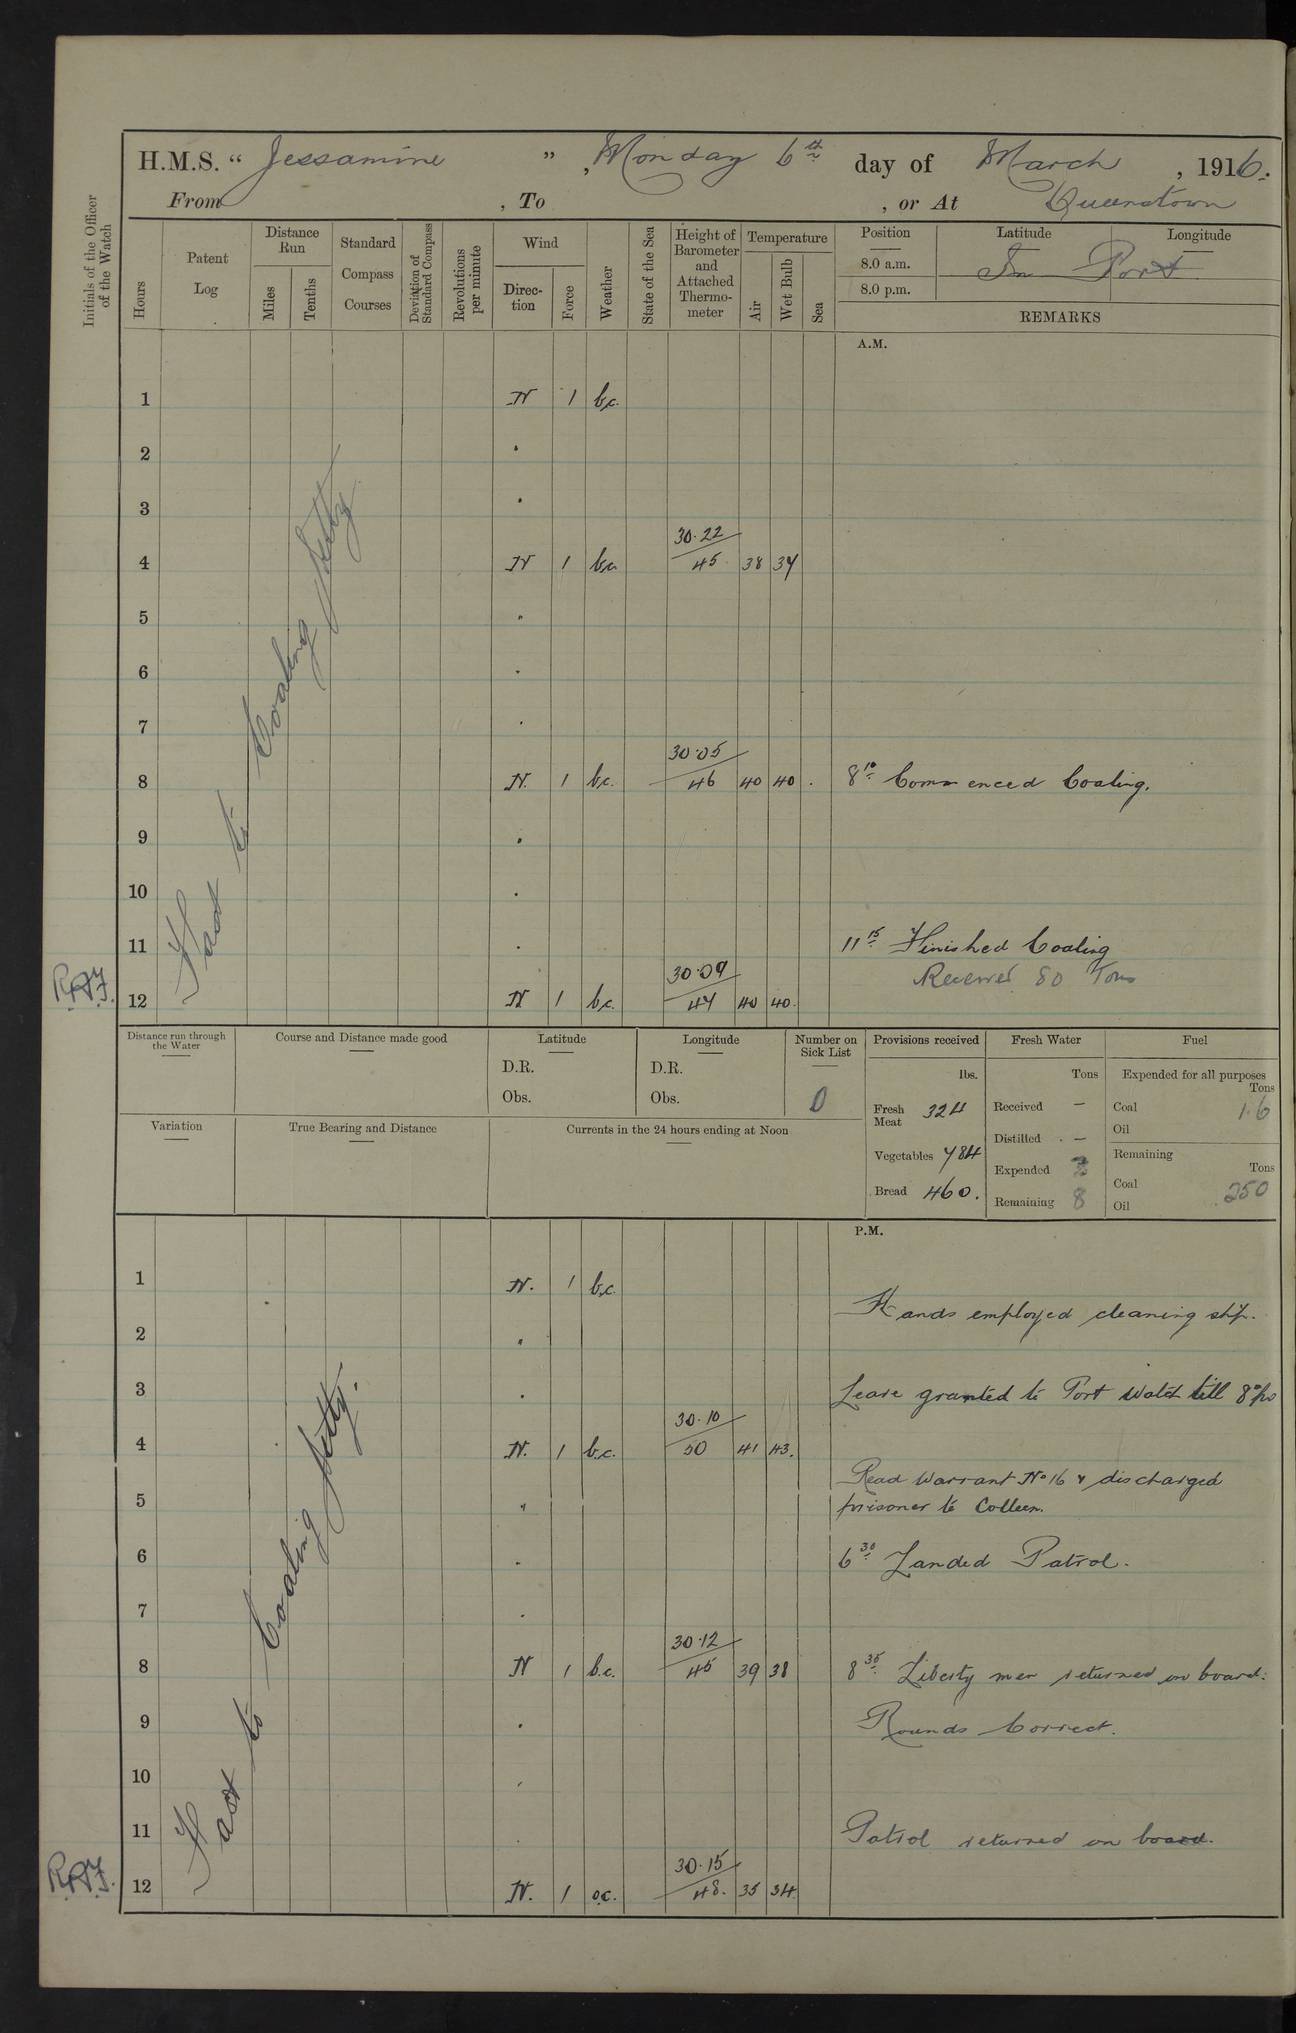 H.M.S. “ Jessamine ” , Monday 6th day of March , 1916.
From , To , or At Queenstown
Initials of the Officer of the Watch
Hours
Patent Log
Distance Run
Miles
Tenths
Standard Compass Courses
Deviation of Standard Compass
Revolutions per minute
Wind
Direction
Force
Weather
State of the Sea
Height of Barometer and Attached Thermometer
Temperature
Air
Wet Bulb
Sea
Position Latitude Longitude
8.0 a.m. In Port
8.0 p.m.
REMARKS
A.M.
Fast to Coaling Jetty
1 N 1 b.c.
2 "
3 "
30.22
4 N 1 b.c. 45 38 37
5 "
6 "
7 "
30.05
8 N. 1 b.c. 46 40 40 8 10 Commenced Coaling.
9 "
10 "
11 " 11 15 Finished Coaling
30.09 Received 80 Tons
R.A.F. 12 N 1 b.c. 47 40 40
Distance run through the Water
Course and Distance made good
Latitude
D.R.
Obs.
Longitude
D.R.
Obs.
Number on Sick List
0
Variation
True Bearing and Distance
Currents in the 24 hours ending at Noon
Provisions received
lbs.
Fresh Meat 324
Vegetables 784
Bread 460.
Fresh Water
Tons
Received —
Distilled —
Expended
Remaining 8
Fuel
Expended for all purposes
Tons
Coal 1.6
Oil
Remaining
Tons
Coal 250
Oil
P.M.
Fast to Coaling Jetty.
1 N. 1 b.c.
Hands employed cleaning ship.
2 "
3 " Leave granted to Port Watch till 8
30.10
4 N. 1 b.c. 50 41 43.
Read Warrant No 16 & discharged
5 " prisoner to Colleen.
6 " 6 30 Landed Patrol.
7 "
30.12
8 N 1 b.c. 45 39 38 8 35 Liberty men returned on board.
9 " Rounds Correct.
10 "
11 Patrol returned on board.
30.15
R.A.F. 12 N. 1 o.c. 48. 35 34